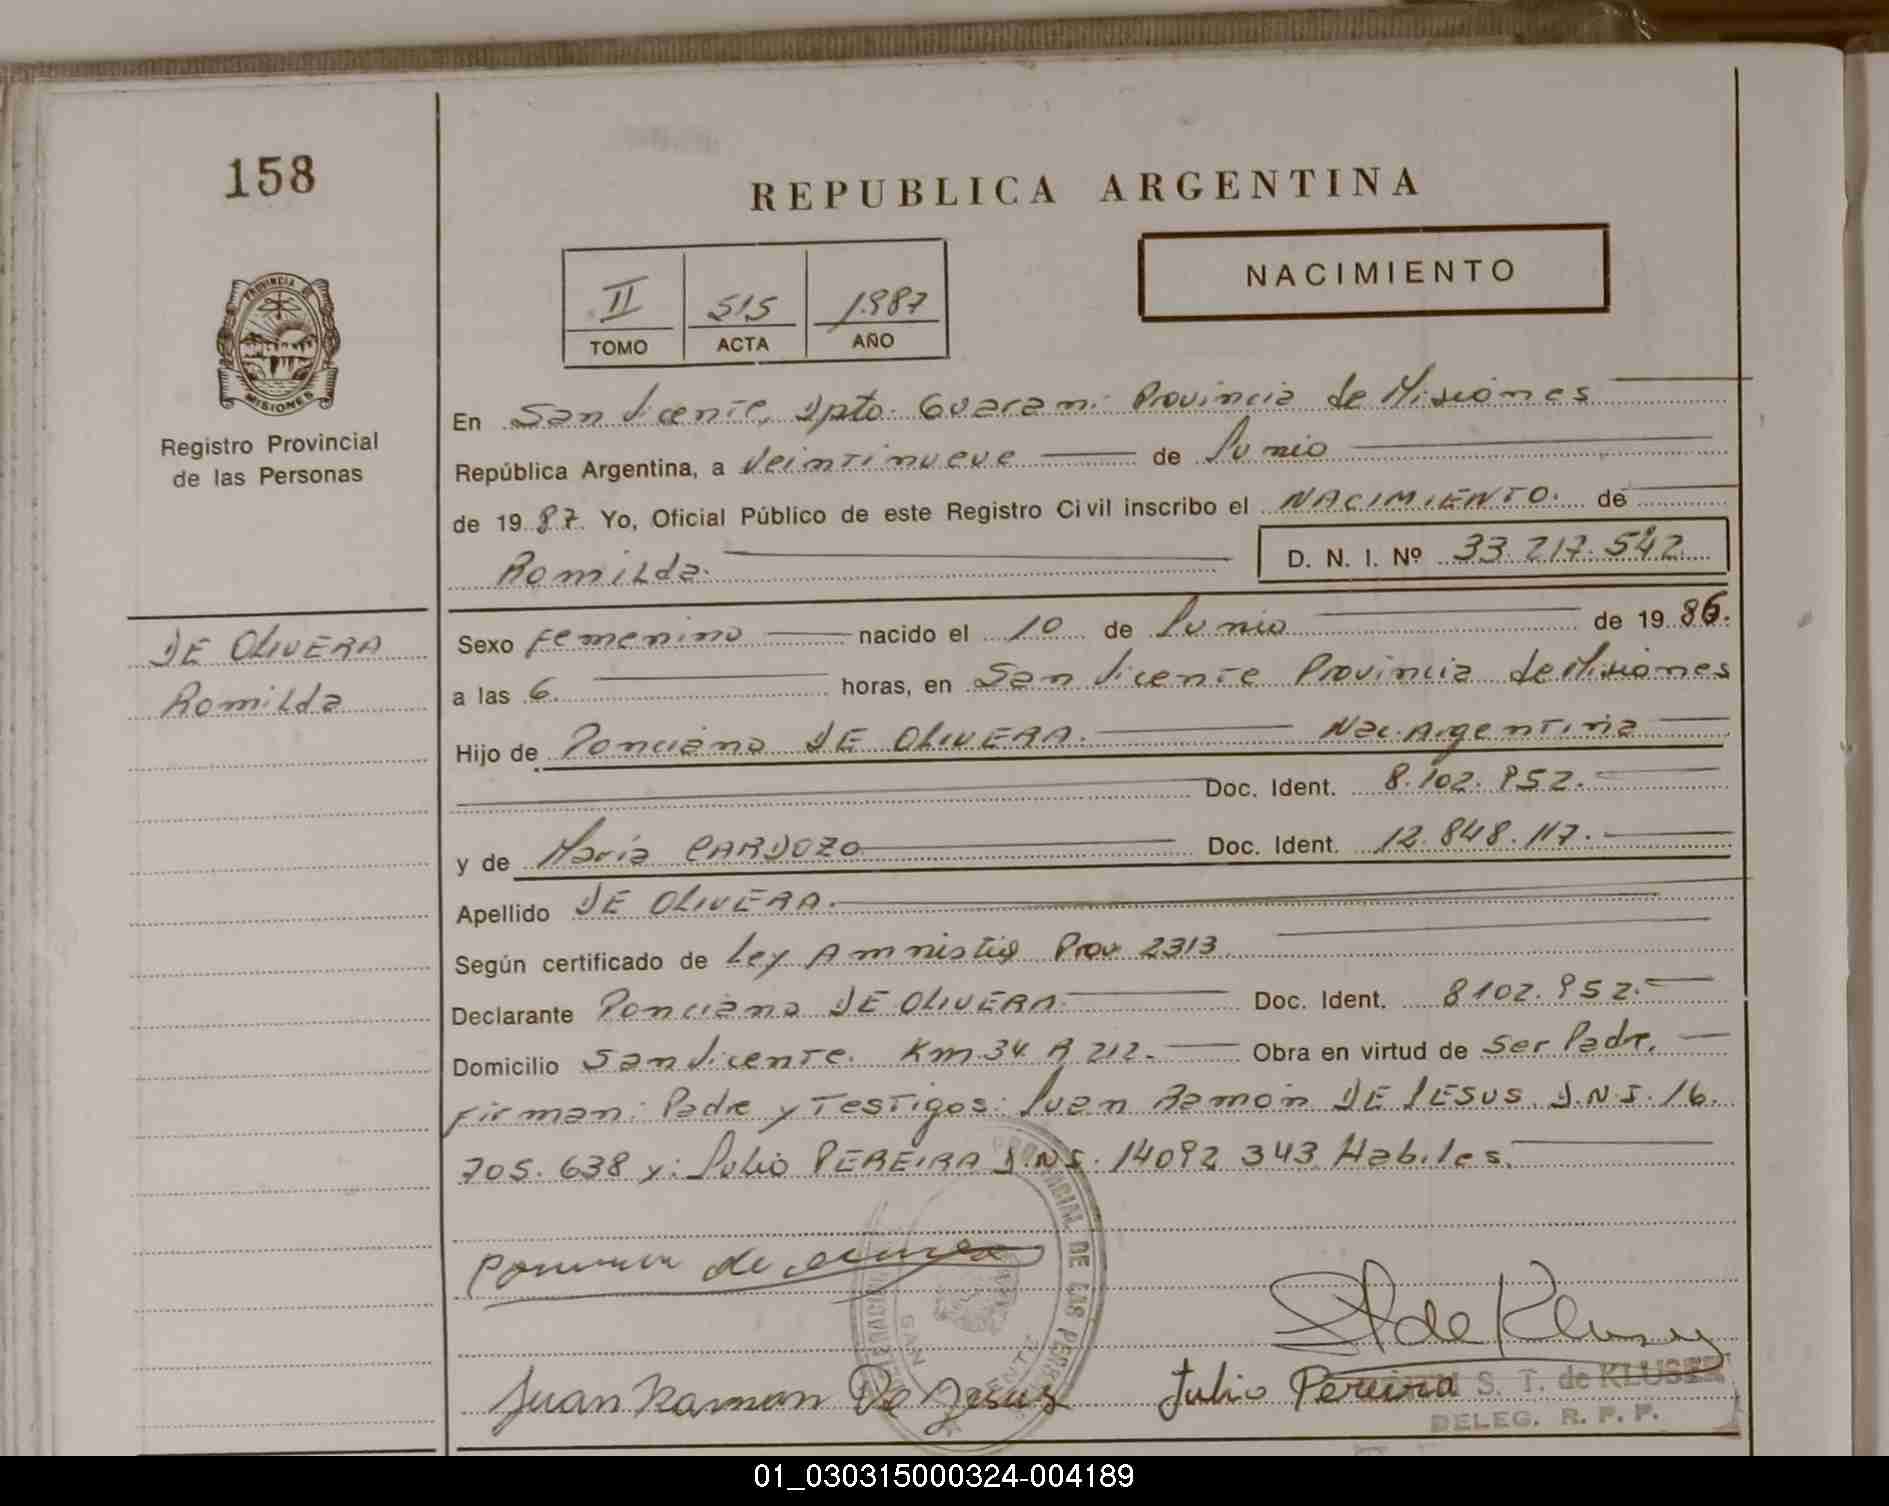 158
REPUBLICA ARGENTINA
NACIMIENTO
II 515 1987
TOMO ACTA AÑO
PROVINCIA DE
MISIONES
Registro Provincial
de las Personas
En San Vicente, Dpto. Guarani Provincia de Misiones
República Argentina, a Veintinueve de Junio
de 19 87. Yo, Oficial Público de este Registro Civil inscribo el NACIMIENTO. de
Romilda. D. N. I. Nº 33.217.542
DE OLIVERA
Romilda
Sexo Femenino nacido el 10 de Junio de 19 86.
a las 6. horas, en San Vicente Provincia de Misiones
Hijo de Ponciano DE OLIVERA. Nac. Argentina
Doc. Ident. 8.102.952.
y de Maria CARDOZO Doc. Ident. 12.848.117.
Apellido DE OLIVERA.
Según certificado de Ley Amnistia Prov 2313.
Declarante Ponciano DE OLIVERA. Doc. Ident. 8102.952.
Domicilio San Vicente. Km.34 R 212. Obra en virtud de Ser Padre.
Firman: Padre y Testigos: Juan Ramón DE JESUS D.N.I. 16.
705.638 y: Julio PEREIRA D.N.I. 14092 343 Habiles.
de
Juan Ramon De Jesus Julio Pereira
S. T. de KLUSER
DELEG. R. P. P.
01_030315000324-004189